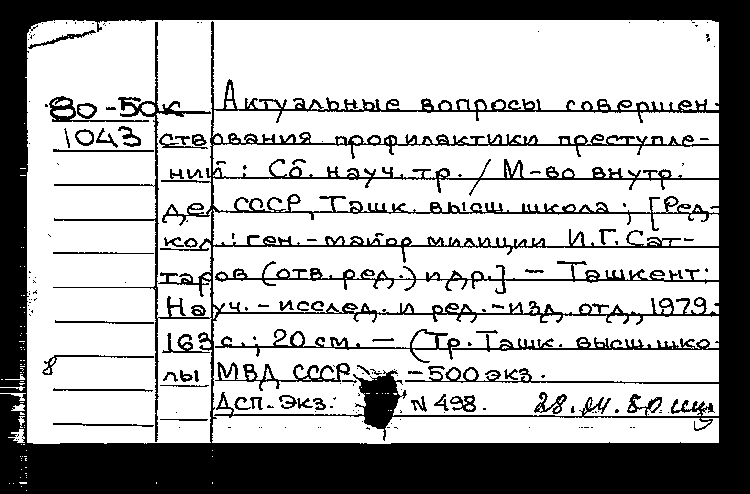 80-50к Актуальные вопросы совершен-
1043 ствования профилактики преступле-
ний : Сб. науч. тр. / М-во внутр.
дел СССР, Ташк. высш. школа ; [Ред-
кол.: ген.-майор милиции И.Г. Сат-
таров (отв. ред.) и др.] — Ташкент:
Науч.-исслед. и ред.-изд. отд., 1979.-
163 с. ; 20 см. — (Тр. Ташк. высш. шко-
8 лы МВД СССР -500 экз.
Дсп. Экз: N 498. 28.